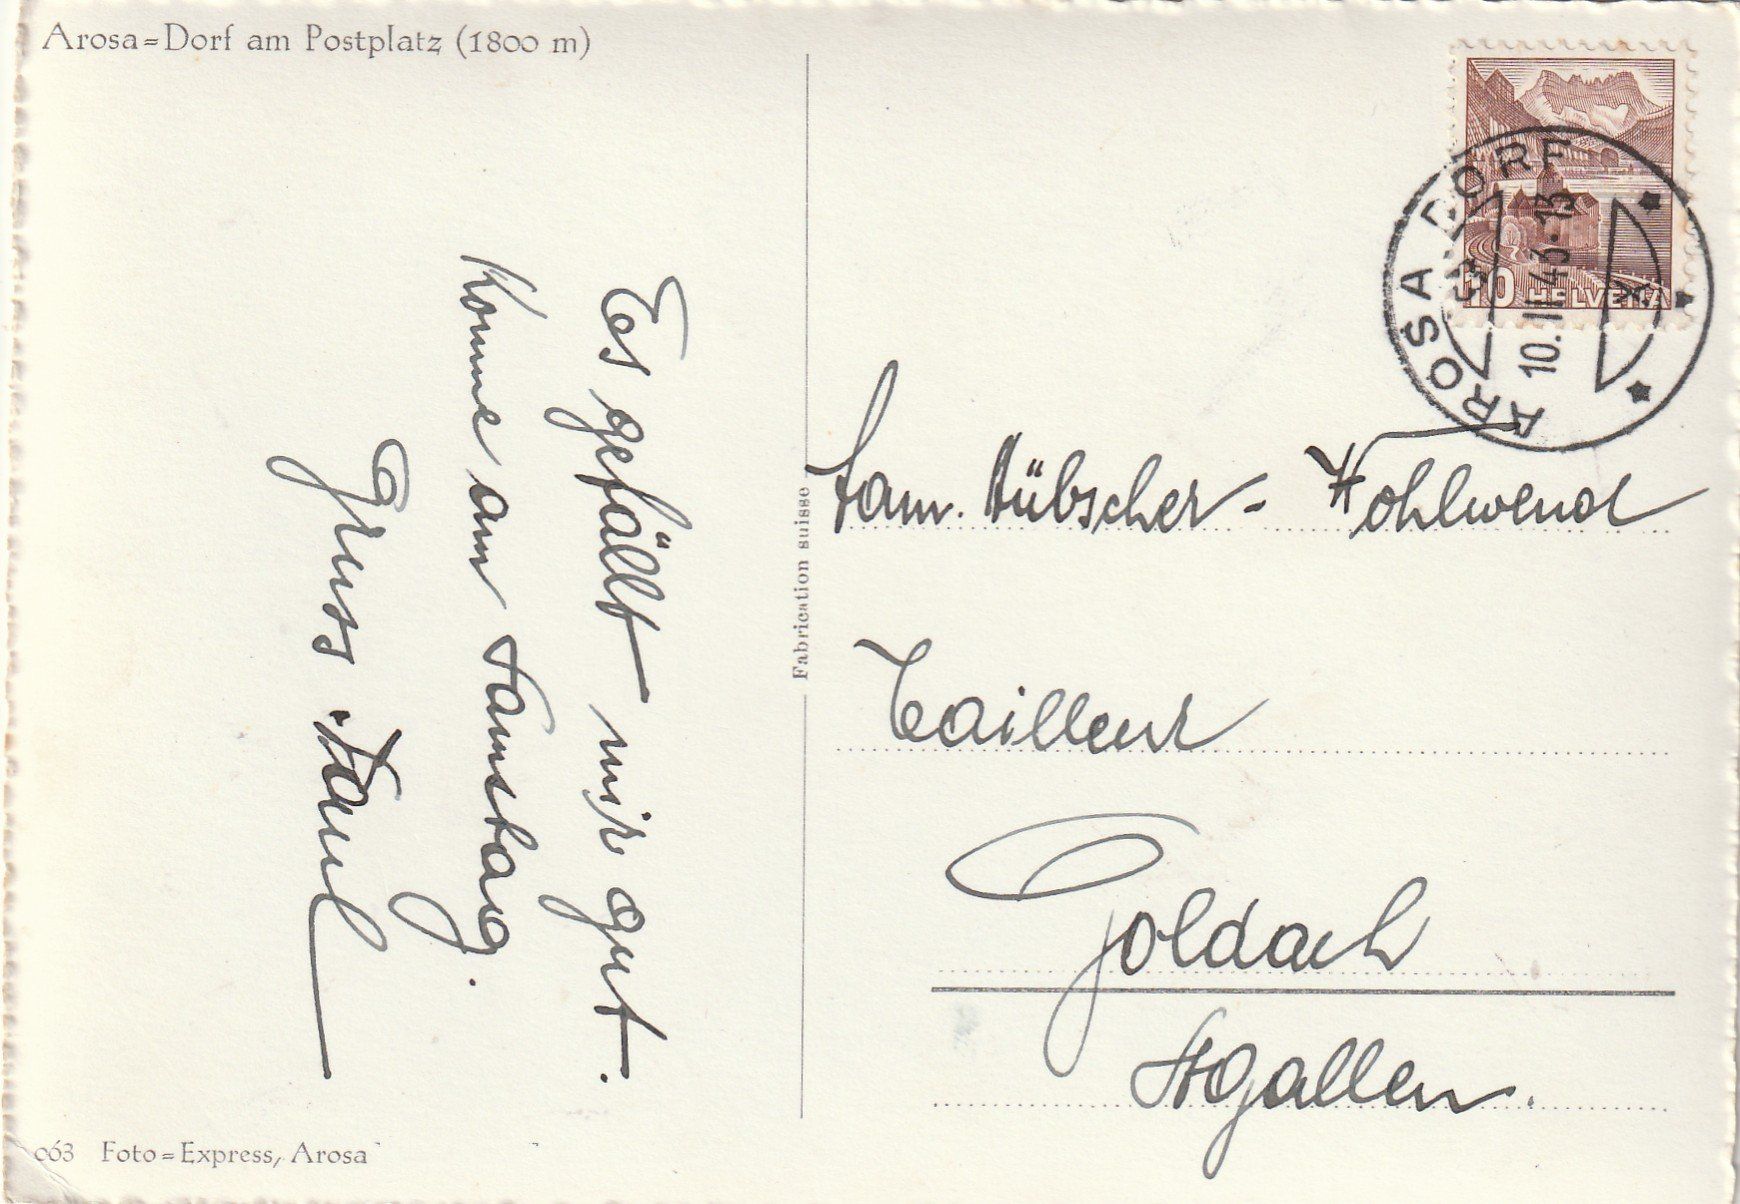 Arosa=Dorf am Postplatz (1800 m)
Es gefällt mir gut.
Komme am Samstag.
Gruss Paul
Fabrication suisse
AROSA DORF
10.II.43-13
10 HELVETIA
Fam. Hübscher - Wohlwend
Tailleur
Goldach
St Gallen.
063 Foto=Express, Arosa